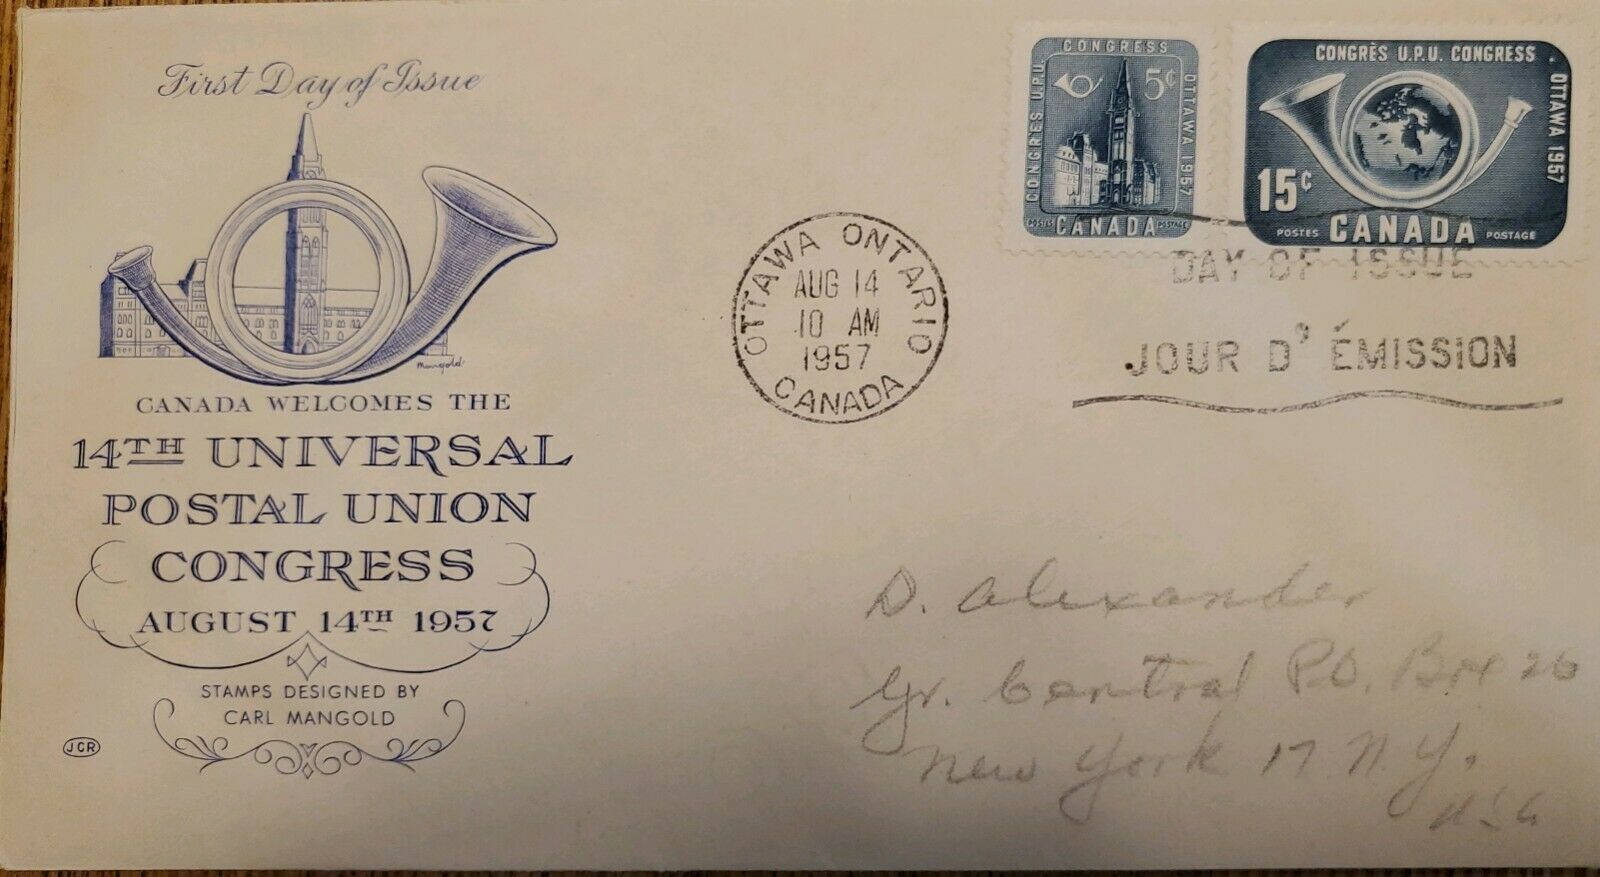 First Day of Issue
Mangold
CANADA WELCOMES THE
14TH UNIVERSAL
POSTAL UNION
CONGRESS
AUGUST 14TH 1957
STAMPS DESIGNED BY
CARL MANGOLD
JCR
OTTAWA ONTARIO
AUG 14
10 AM
1957
CANADA
CONGRÈS U.P.U. CONGRESS OTTAWA 1957
5¢
POSTES CANADA POSTAGE
CONGRÈS U.P.U. CONGRESS . OTTAWA 1957
15¢
POSTES CANADA POSTAGE
DAY OF ISSUE
JOUR D'ÉMISSION
D. Alexander
Gr. Central P.O. Box 26
New York 17 N.Y.
USA